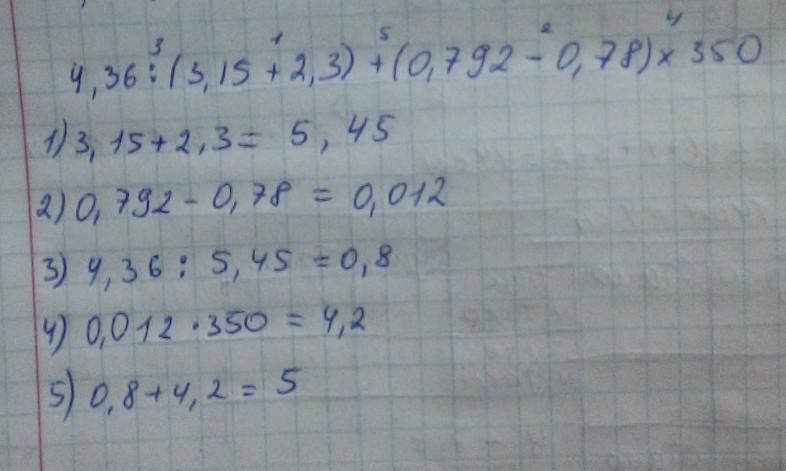 3 1 5 2 4
4,36:(3,15+2,3)+(0,792-0,78)×350
1) 3,15+2,3= 5,45
2) 0,792-0,78 = 0,012
3) 4,36 : 5,45 =0,8
4) 0,012·350 = 4,2
5) 0,8+4,2 = 5